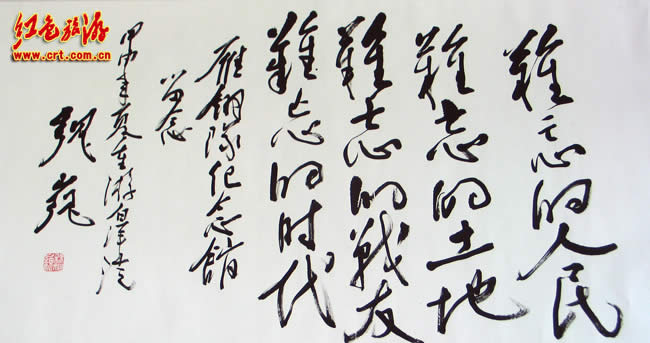 难忘的人民
难忘的土地
难忘的战友
难忘的时代
雁翎队纪念馆
留念
甲申年夏重游白洋淀
魏巍
红色旅游
www.crt.com.cn